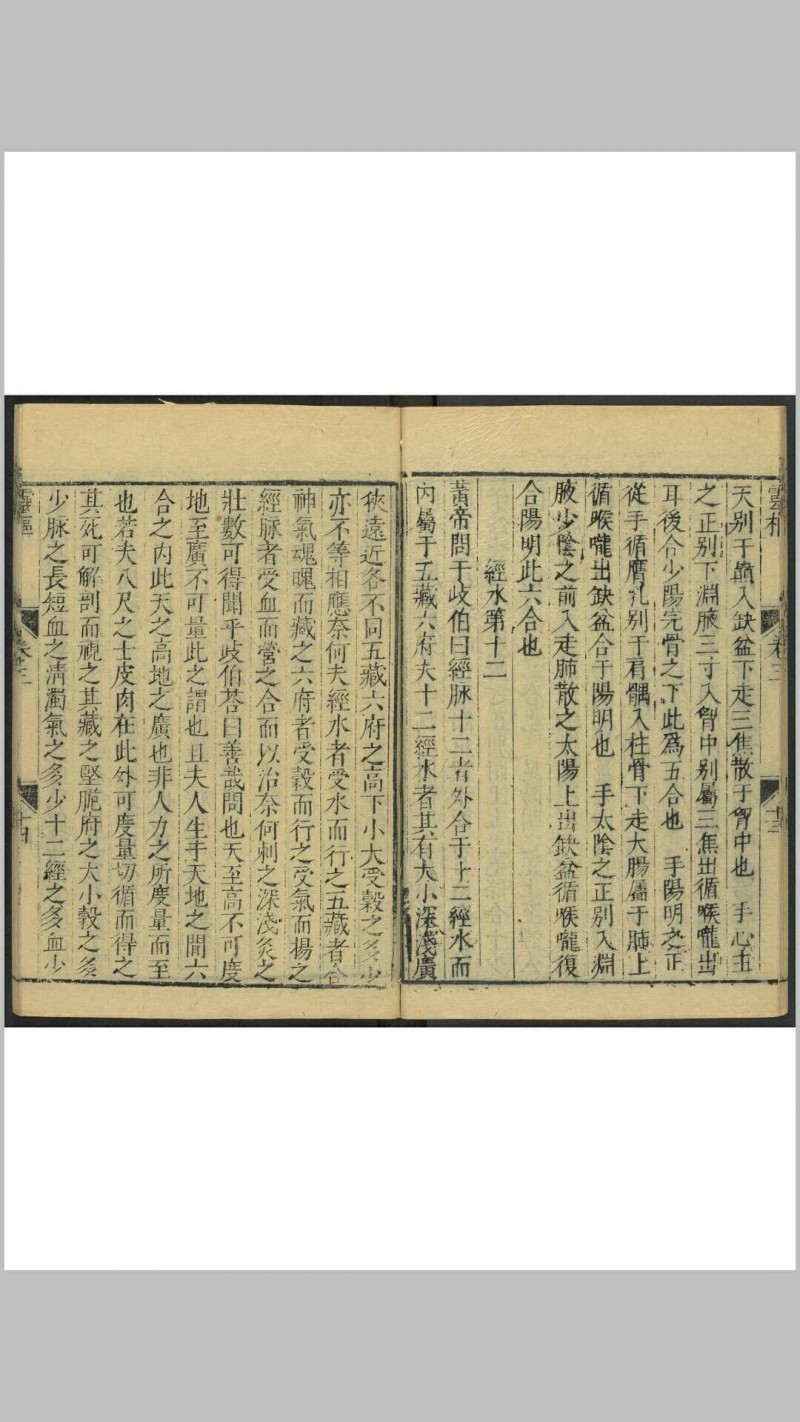 天別于巔入缺盆下走三焦散于胷中也　手心主
之正別下淵腋三寸入胷中別屬三焦出循喉嚨出
耳後合少陽完骨之下此爲五合也　手陽明之正
從手循膺乳別于肩髃入柱骨下走大腸屬于肺上
循喉嚨出缺盆合于陽明也　手太陰之正別入淵
腋少陰之前入走肺散之太陽上出缺盆循喉嚨復
合陽明此六合也
經水第十二
黃帝問于歧伯曰經脉十二者外合于十二經水而
內屬于五藏六府夫十二經水者其有大小深淺廣
狹遠近各不同五藏六府之高下小大受穀之多少
亦不等相應奈何夫經水者受水而行之五藏者合
神氣魂魄而藏之六府者受穀而行之受氣而揚之
經脉者受血而營之合而以治奈何刺之深淺灸之
壯數可得聞乎歧伯荅曰善哉問也天至高不可度
地至廣不可量此之謂也且夫人生于天地之間六
合之內此天之高地之廣也非人力之所度量而至
也若夫八尺之士皮肉在此外可度量切循而得之
其死可解剖而視之其藏之堅脆府之大小穀之多
少脉之長短血之清濁氣之多少十二經之多血少
靈樞
卷三
十四